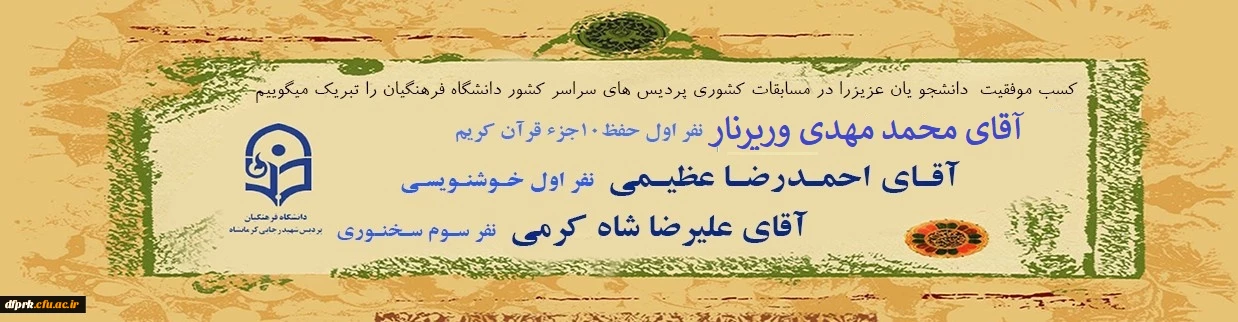 کسب موفقیت دانشجو یان عزیزرا در مسابقات کشوری پردیس های سراسر کشور دانشگاه فرهنگیان را تبریک میگوییم
آقای محمد مهدی وریرنار نفر اول حفظ۱۰جزء قرآن کریم
آقای احمدرضا عظیمی نفر اول خوشنویسی
آقای علیرضا شاه کرمی نفر سوم سخنوری
دانشگاه فرهنگیان
پردیس شهید رجایی کرمانشاه
dfprk.cfu.ac.ir